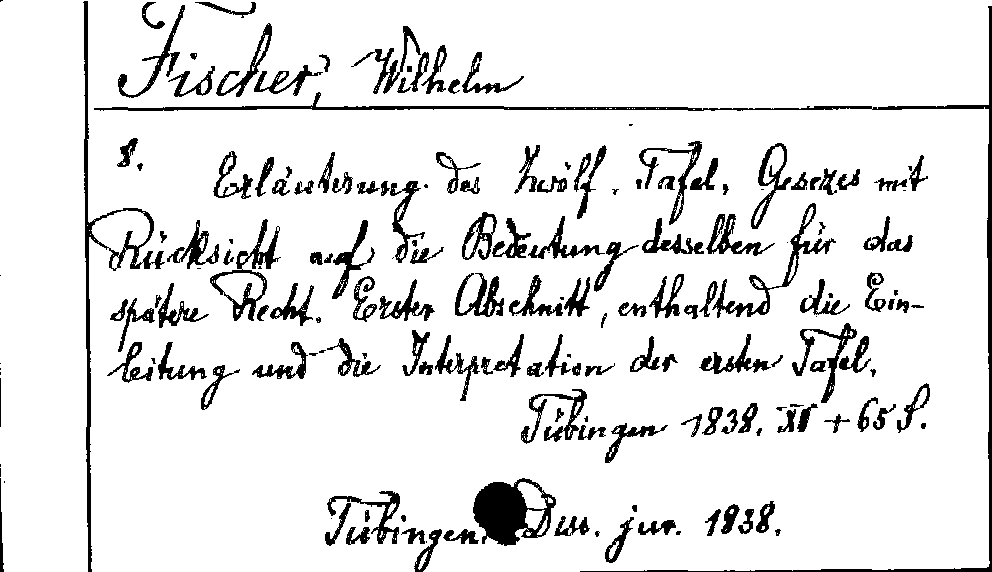 Fischer, Wilhelm
8. Erläuterung des Zwölf. Tafel. Gesezes mit
Rücksicht auf die Bedeutung desselben für das
spätere Recht. Erster Abschnitt, enthaltend die Ein-
leitung und die Interpretation der ersten Tafel.
Tübingen 1838. XII + 65 S.
Tübingen. Diss. jur. 1838.